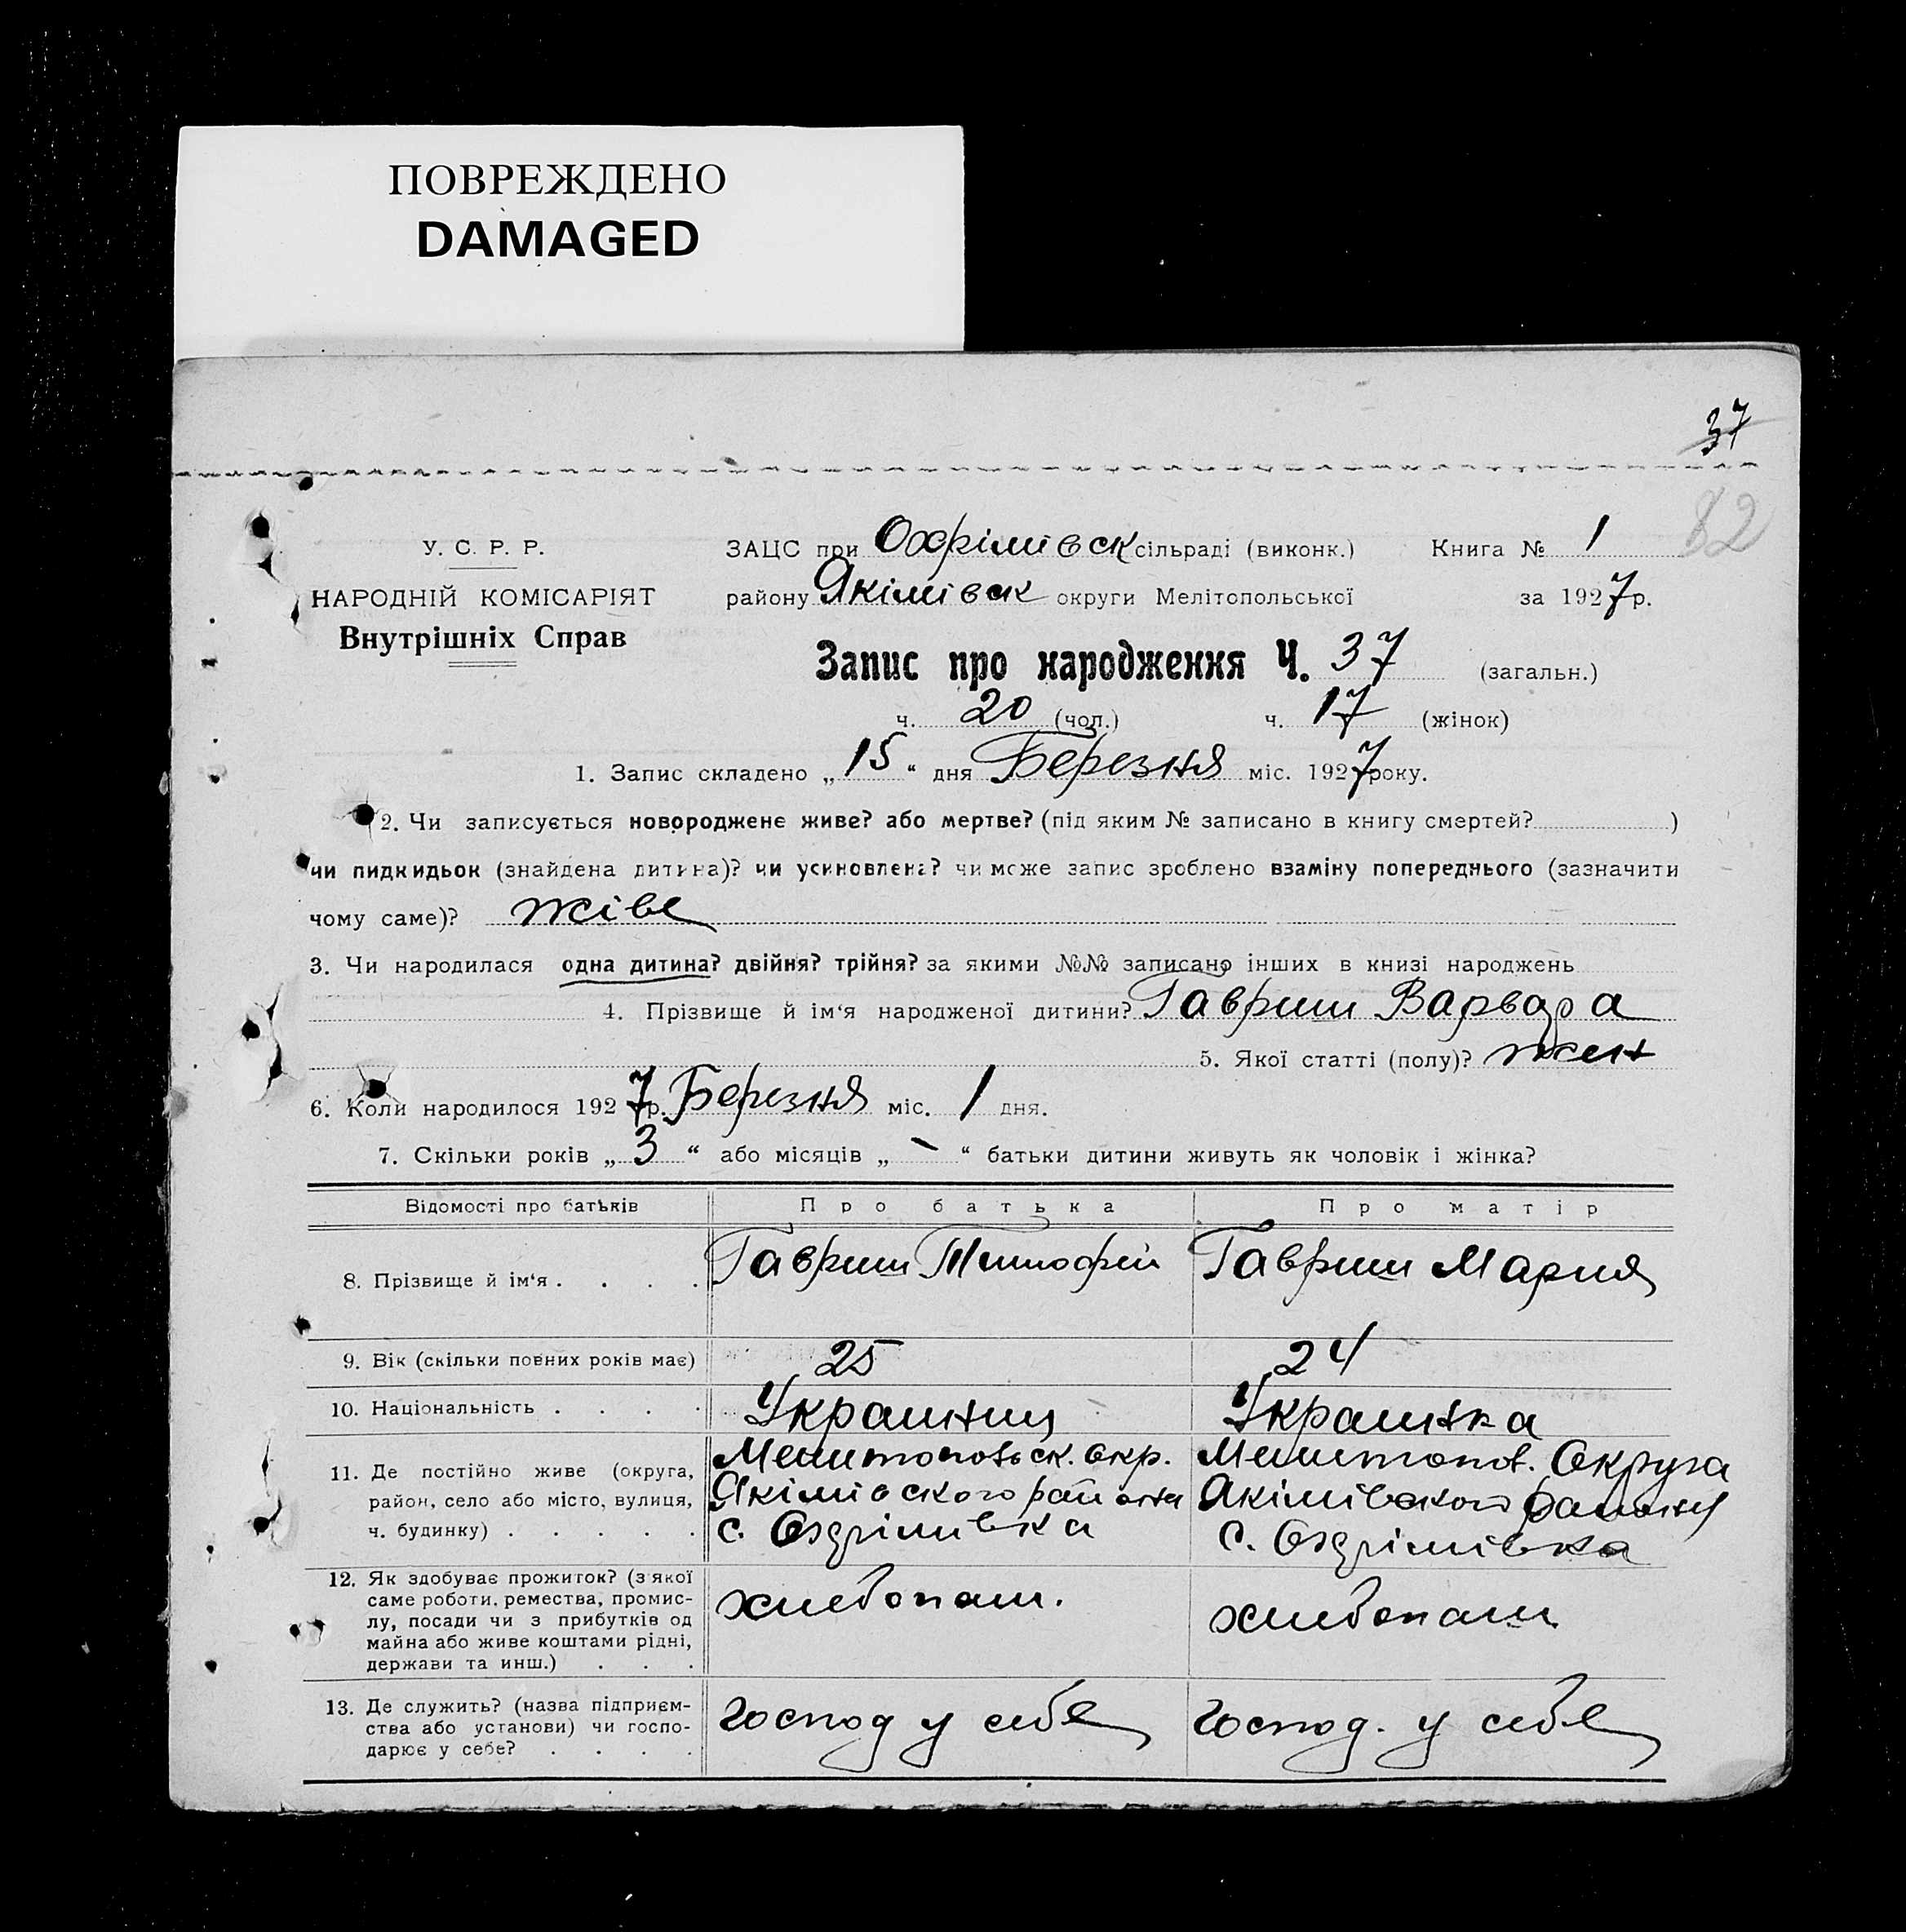 ПОВРЕЖДЕНО
DAMAGED
37
82
У. С. Р. Р.
НАРОДНІЙ КОМІСАРІЯТ
Внутрішніх Справ
ЗАЦС при Охфімівск сільраді (виконк.) Книга № 1
району Якімівск округи Мелітопольської за 1927 р.
Запис про народження Ч. 37 (загальн.)
ч. 20 (чол.) ч. 17 (жінок)
1. Запис складено „15“ дня Березня міс. 1927 року.
2. Чи записується новороджене живе? або мертве? (під яким № записано в книгу смертей? )
чи пидкидьок (знайдена дитина)? чи усиновлена? чи може запис зроблено взаміну попереднього (зазначити
чому саме)? живе
3. Чи народилася одна дитина? двійня? трійня? за якими №№ записано інших в книзі народжень
4. Прізвище й ім‘я народженої дитини? Гавриш Варвара
5. Якої статті (полу)? жен
6. Коли народилося 1927 р. Березня міс. 1 дня.
7. Скільки років „3“ або місяців „-“ батьки дитини живуть як чоловік і жінка?
Відомості про батьків Про батька Про матір
8. Прізвище й ім‘я . . . . Гавриш Тимофей Гавриш Мария
9. Вік (скільки повних років має) 25 24
10. Національність . . . . Украинец Украинка
11. Де постійно живе (округа, Мелитопольск. окр. Мелитопол. Округа
район, село або місто, вулиця, Якімівского района Якімівского району
ч. будинку) . . . . . с. Охрімівка с. Охрімівка
12. Як здобуває прожиток? (з якої
саме роботи, ремества, промис- хлебопаш. хлебопаш
лу, посади чи з прибутків од
майна або живе коштами рідні,
держави та инш.) . . .
13. Де служить? (назва підприєм- господ у себе господ. у себе
ства або установи) чи госпо-
дарює у себе? . . . .